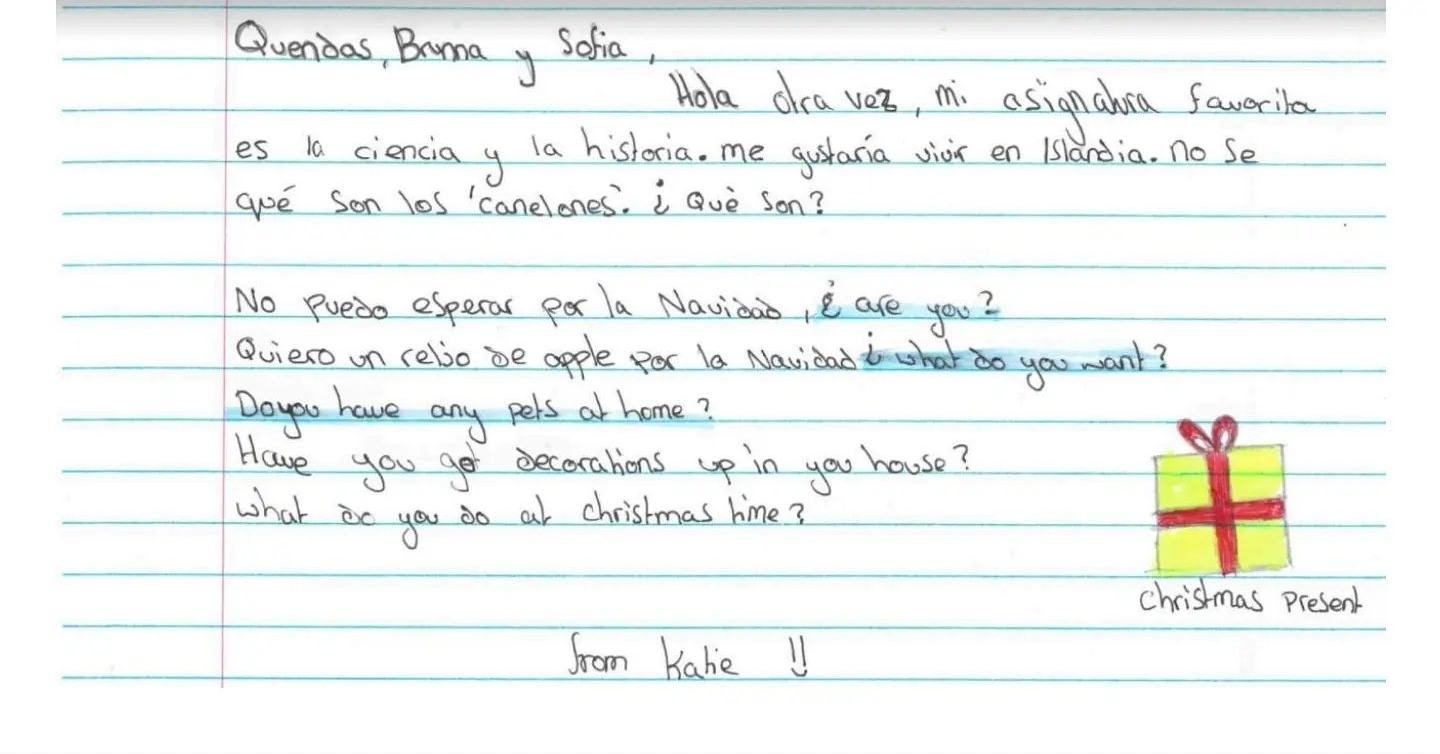 Quendas, Bruna y Sofia,
Hola otra vez, mi asignatura favorita
es la ciencia y la historia. me gustaría vivir en Islandia. no se
qué son los 'canelones'. ¿Què son?
No puedo esperar por la Navidad, ¿ are you?
Quiero un relio de apple por la Navidad ¿ what do you want?
Do you have any pets at home?
Have you got decorations up in you house?
what do you do at christmas time?
christmas present
from Katie !!